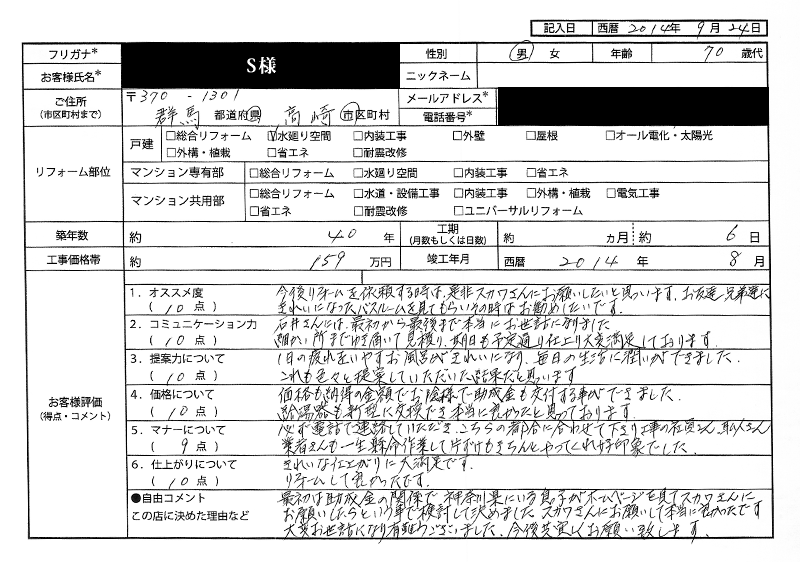 記入日 西暦 2014年 9月 24日
フリガナ* S様 性別 男 女 年齢 70 歳代
お客様氏名* ニックネーム
ご住所 〒370-1301 メールアドレス*
(市区町村まで) 群馬 都道府県 高崎 市区町村 電話番号*
リフォーム部位 戸建 □総合リフォーム ☑水廻り空間 □内装工事 □外壁 □屋根 □オール電化・太陽光
□外構・植栽 □省エネ □耐震改修
マンション専有部 □総合リフォーム □水廻り空間 □内装工事 □省エネ
マンション共用部 □総合リフォーム □水道・設備工事 □内装工事 □外構・植栽 □電気工事
□省エネ □耐震改修 □ユニバーサルリフォーム
築年数 約 40 年 工期(月数もしくは日数) 約 ヵ月 約 6 日
工事価格帯 約 159 万円 竣工年月 西暦 2014 年 8 月
お客様評価
(得点・コメント)
1．オススメ度 今後リフォームを依頼する時は、是非スカワさんにお願いしたいと思います。お友達、兄弟達に
(10点) きれいになったバスルームを見てもらいその時はお勧めしたいです。
2．コミュニケーション力 石井さんには、最初から最後まで本当にお世話になりました
(10点) 細かい所までゆき届いて見積り、期日も予定通り仕上り大変満足しております。
3．提案力について 1日の疲れをいやすお風呂がきれいになり、毎日の生活に潤いができました。
(10点) これも色々と提案していただいた結果だと思います
4．価格について 価格も納得の金額でお陰様で助成金も交付する事ができました。
(10点) 給湯器も新型に交換でき本当に良かったと思っております。
5．マナーについて 必ず電話で連絡していただき、こちらの都合に合わせて下さり工事の社員さん、職人さん
(9点) 業者さんも一生懸命作業して片づけもきちんとやってくれ好印象でした。
6．仕上がりについて きれいな仕上がりに大満足です。
(10点) リフォームして良かったです。
●自由コメント 最初は助成金の関係で神奈川県にいる息子がホームページを見てスカワさんに
この店に決めた理由など お願いしたらという事で検討して決めました。スカワさんにお願いして本当に良かったです
大変お世話になり有難うございました。今後共宜しくお願い致します。